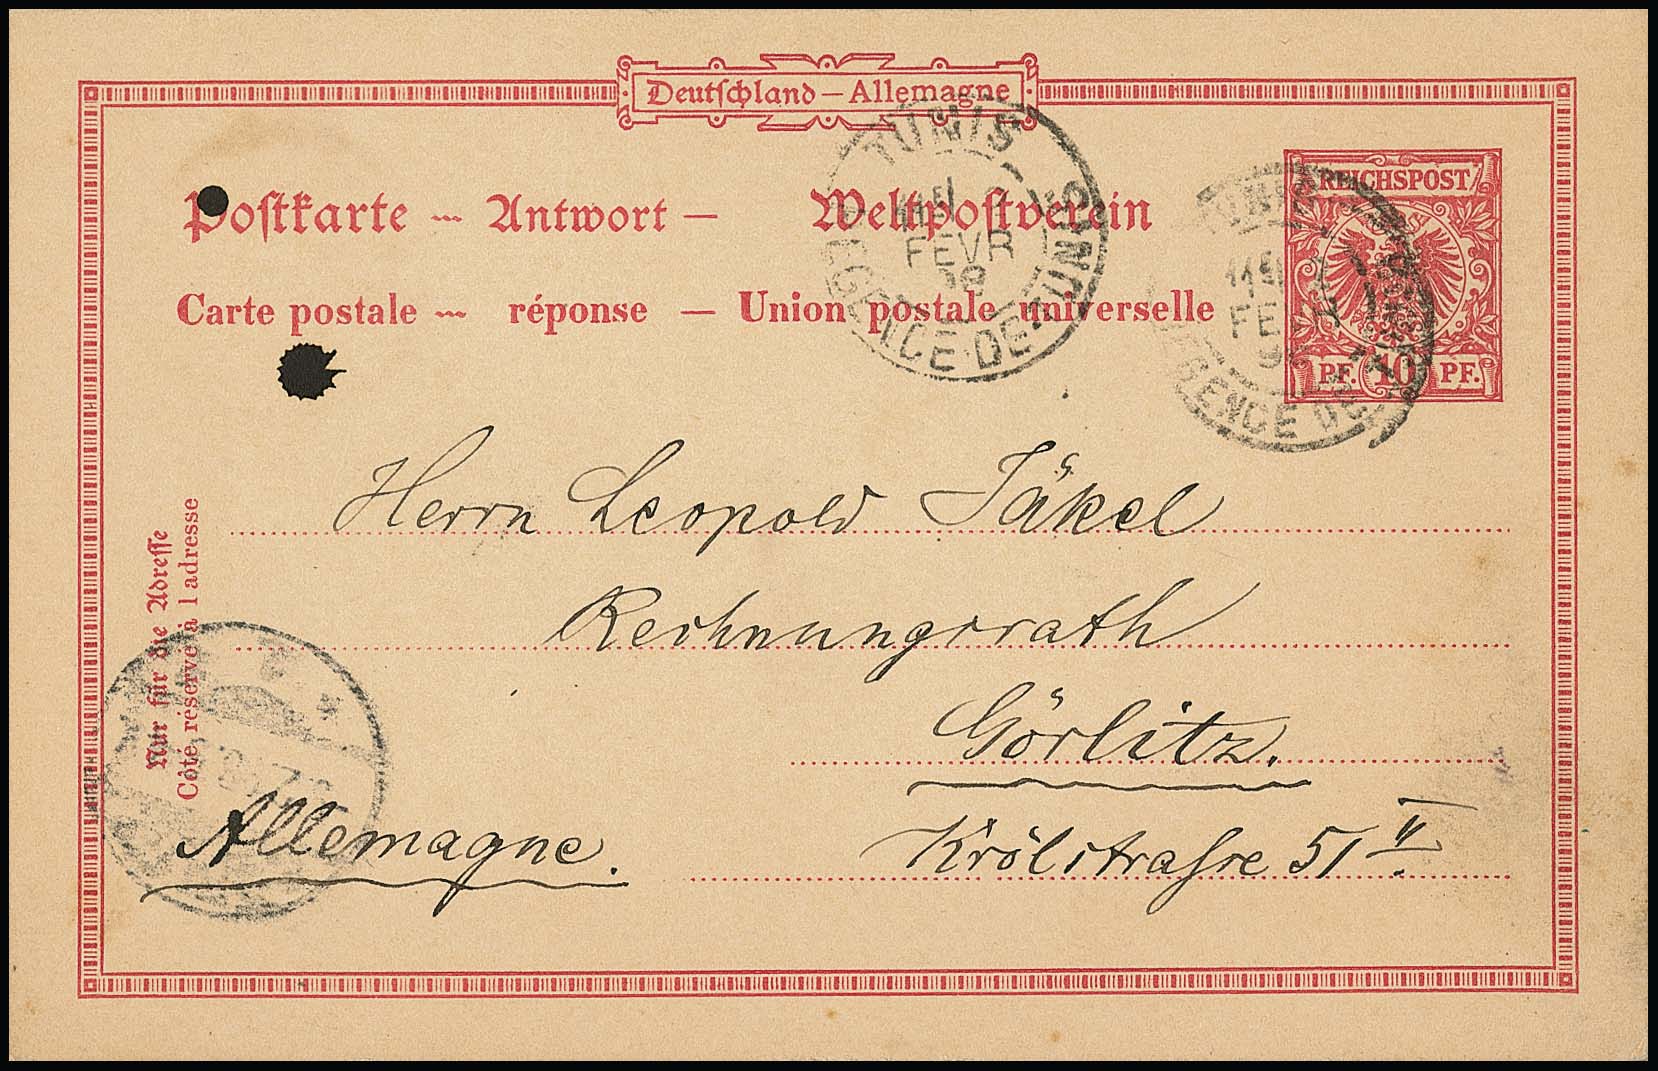 Deutschland – Allemagne
Postkarte – Antwort – Weltpostverein
Carte postale – réponse – Union postale universelle
REICHSPOST
PF. 10 PF.
TUNIS
FEVR
98
REGENCE DE TUNIS
TUNIS
REGENCE DE TUNIS
Nur für die Adresse
Côté réservé à l adresse
Herrn Leopold Jäkel
Rechnungsrath
Görlitz.
Krölstraße 51 II
Allemagne.